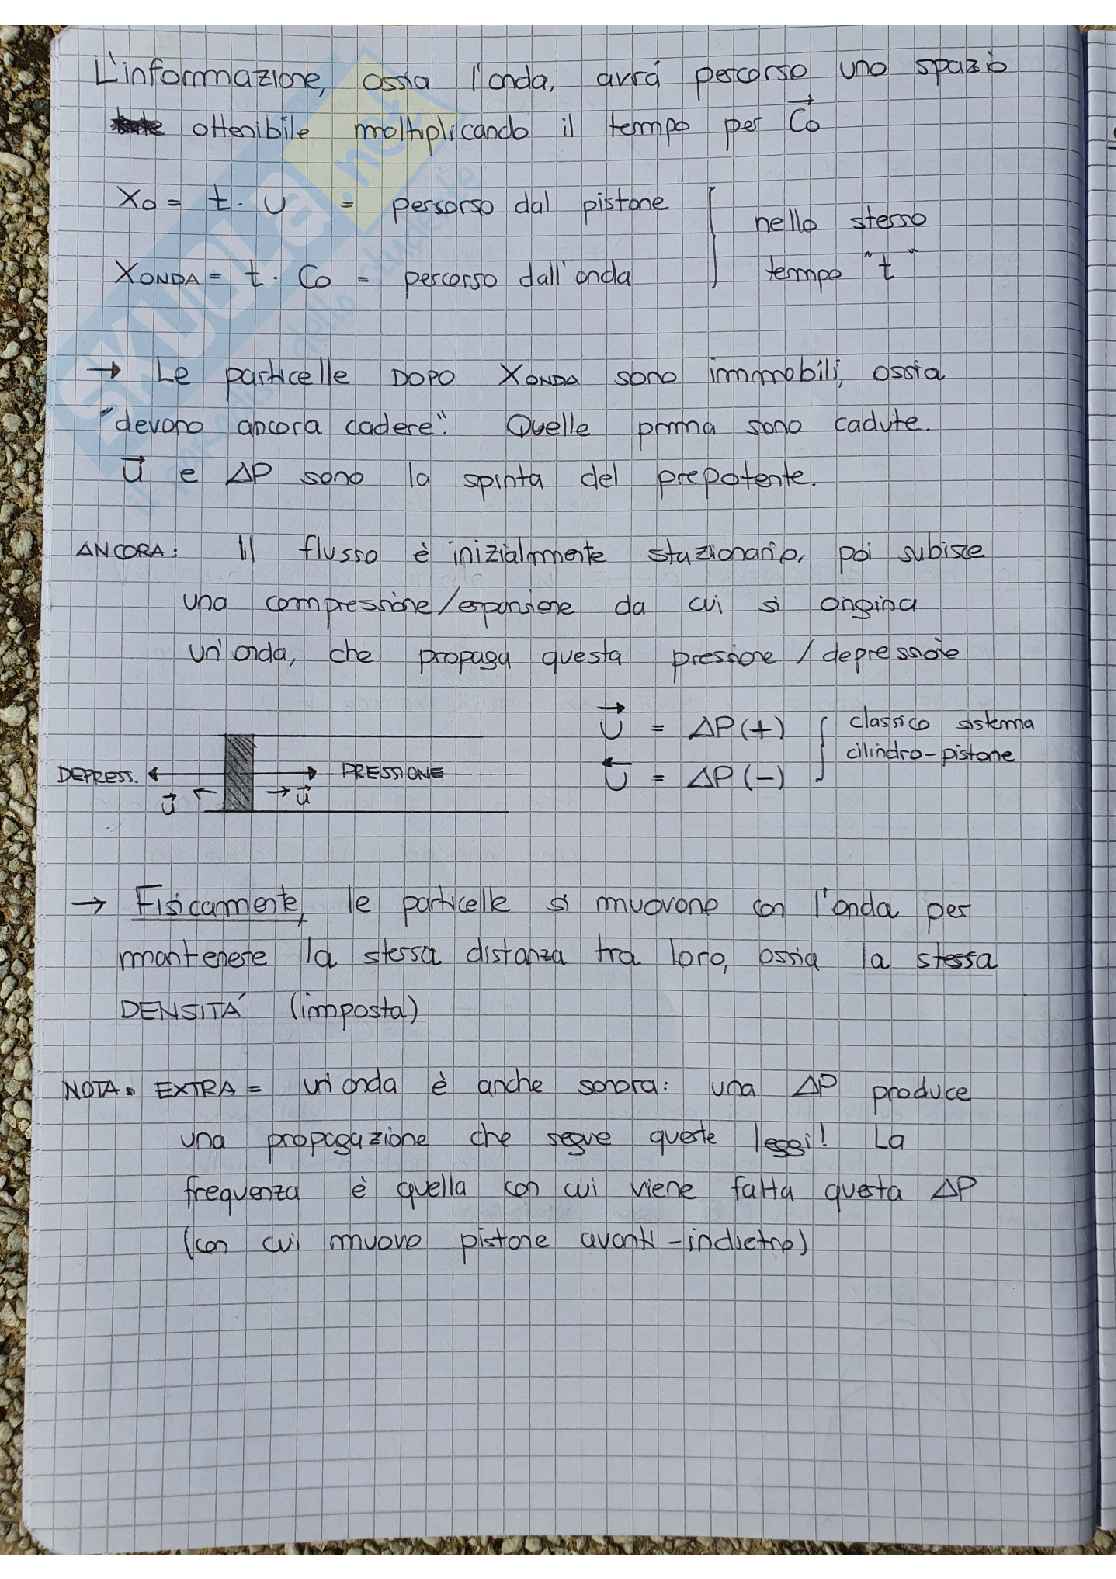 L'informazione, ossia l'onda, avrá percorso uno spazio
ottenibile moltiplicando il tempo per C0
X0 = t · U = persorso dal pistone
nello stesso
XONDA = t · C0 = percorso dall'onda
tempo "t"
→ Le particelle DOPO XONDA sono immobili, ossia
"devono ancora cadere". Quelle prima sono cadute.
U e ΔP sono la spinta del prepotente.
ANCORA: Il flusso è inizialmente stazionario, poi subisce
una compressione/espansione da cui si origina
un'onda, che propaga questa pressione / depressione
U = ΔP(+)
classico sistema
cilindro-pistone
U = ΔP(-)
DEPRESS. PRESSIONE
U U
→ Fisicamente, le particelle si muovono con l'onda per
mantenere la stessa distanza tra loro, ossia la stessa
DENSITÁ (imposta)
NOTA. EXTRA = un'onda è anche sonora: una ΔP produce
una propagazione che segue queste leggi! La
frequenza è quella con cui viene fatta questa ΔP
(con cui muovo pistone avanti-indietro)
SKUOLA.net